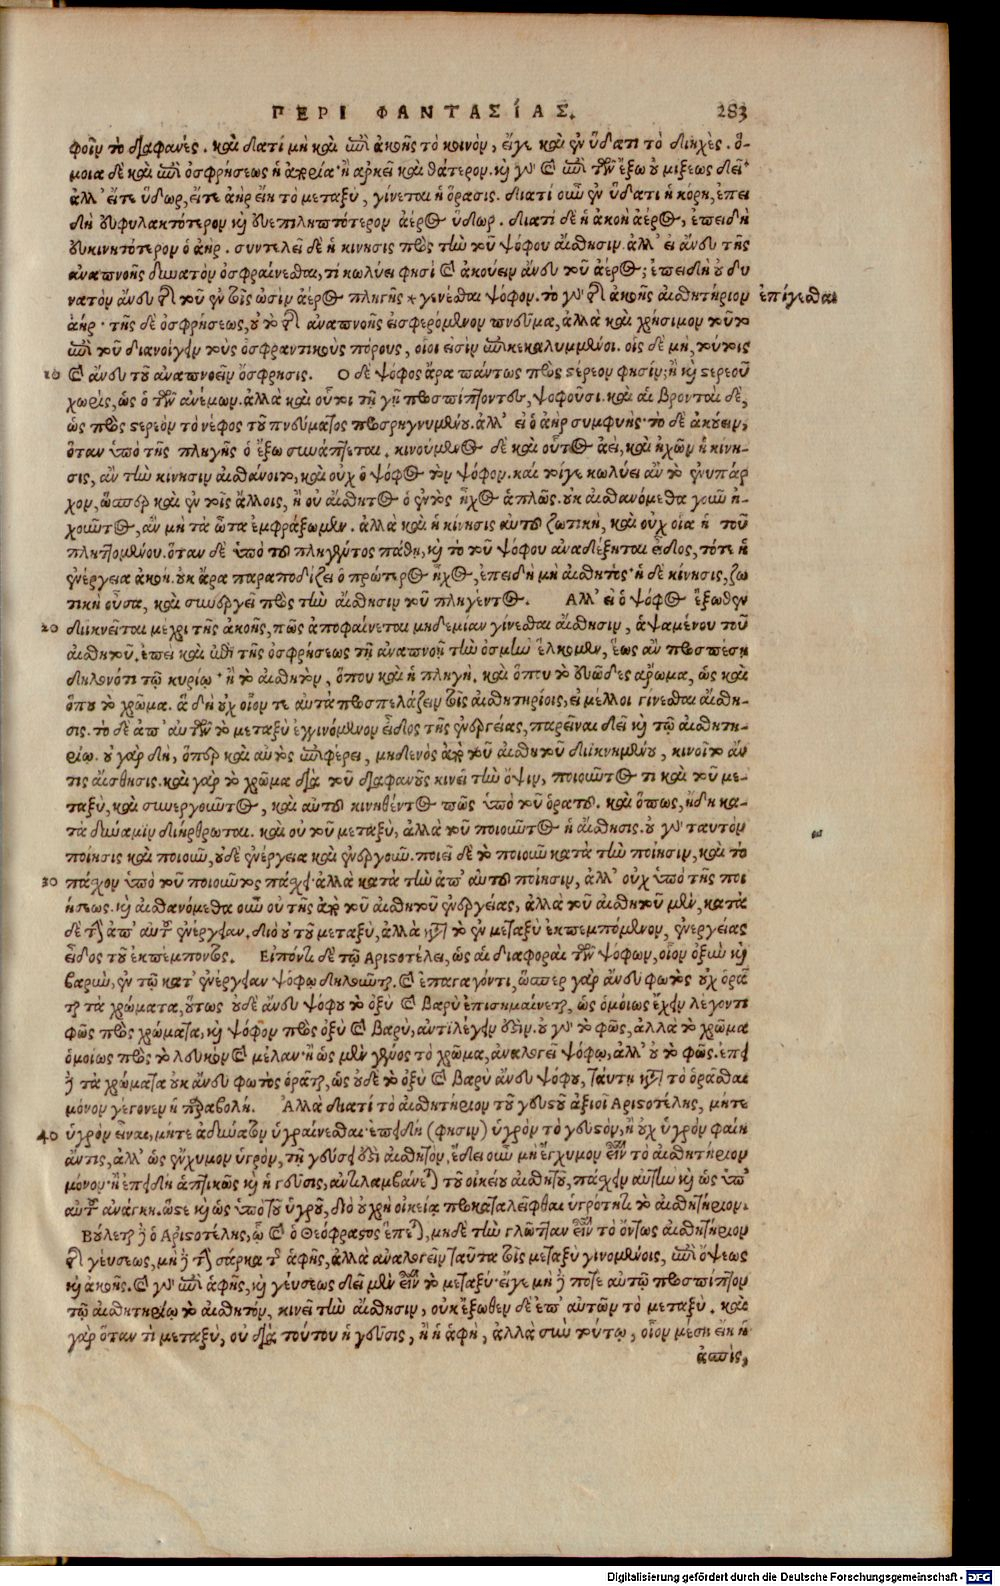 ΠΕΡΙ ΦΑΝΤΑΣΙΑΣ. 283
φοῖν τὸ διαφανές. καὶ διατί μὴ καὶ ἐπὶ ἀκοῆς τὸ κοινὸν, εἴγε καὶ ἐν ὕδατι τὸ διηχές. ὅ-
μοια δὲ καὶ ἐπὶ ὀσφρήσεως ἡ ἀπορία· ἢ ἀρκεῖ καὶ θάτερον. καὶ γὰρ καὶ ἐπὶ τῶν ἔξω οὐ μίξεως δεῖ·
ἀλλ' εἴτε ὕδωρ, εἴτε ἀὴρ εἴη τὸ μεταξὺ, γίνεται ἡ ὅρασις. διατί οὖν ἐν ὕδατι ἡ κόρη, ἐπει
δὴ εὐφυλακτότερον καὶ εὐεπιληπτότερον ἀέρος ὕδωρ. διατί δὲ ἡ ἀκοὴ ἀέρος, ἐπειδὴ
εὐκινητότερον ὁ ἀήρ. συντελεῖ δὲ ἡ κίνησις πρὸς τὴν τοῦ ψόφου αἴσθησιν. ἀλλ' εἰ ἄνευ τῆς
ἀναπνοῆς δυνατὸν ὀσφραίνεσθαι, τί κωλύει φησὶ καὶ ἀκούειν ἄνευ τοῦ ἀέρος; ἐπειδὴ οὐ δυ
νατὸν ἄνευ διὰ τοῦ ἐν τοῖς ὠσὶν ἀέρος πληγῆς * γενέσθαι ψόφον. τὸ γὰρ διὰ ἀκοῆς αἰσθητήριον ἐπίγεσθαι
ἀήρ· τῆς δὲ ὀσφρήσεως, οὐ τὸ διὰ ἀναπνοῆς εἰσφερόμενον πνεῦμα, ἀλλὰ καὶ χρήσιμον τοῦτο
ἐπὶ τοῦ διανοίγειν τοὺς ὀσφραντικοὺς πόρους, οἷοι εἰσὶν ἐπικεκαλυμμένοι. οἷς δὲ μὴ, τούτοις
10 καὶ ἄνευ τοῦ ἀναπνοεῖν ὄσφρησις. Ὁ δὲ ψόφος ἄρα πάντως πρὸς στερεὸν φησίν; ἢ καὶ στερεοῦ
χωρὶς, ὡς ὁ τῶν ἀνέμων. ἀλλὰ καὶ οὗτοι τῇ γῇ προσπίπτοντες, ψοφοῦσι. καὶ αἱ βρονταὶ δὲ,
ὡς πρὸς στερεὸν τὸ νέφος τοῦ πνεύματος προσρηγνυμένου. ἀλλ' εἰ ὁ ἀὴρ συμφυής· τὸ δὲ ἀκούειν,
ὅταν ὑπὸ τῆς πληγῆς ὁ ἔξω συνάπτεται. κινούμενος δὲ καὶ οὗτος ἀεὶ, καὶ ἠχῶν ἡ κίνη-
σις, ἂν τὴν κίνησιν αἰσθάνοιτο, καὶ οὐχ ὁ ψόφος τὸν ψόφον. καί τοίγε κωλύει ἂν τὸ ἐνυπάρ
χον, ὥσπερ καὶ ἐν τοῖς ἄλλοις, ἢ οὐ αἰσθητὸς ὁ ἐντὸς ἦχος ἁπλῶς. οὐκ αἰσθανόμεθα γοῦν ἠ-
χοῦντος, ἂν μὴ τὰ ὦτα ἐμφράξωμεν. ἀλλὰ καὶ ἡ κίνησις αὐτοῦ ζωτικὴ, καὶ οὐχ οἵα ἡ τοῦ
πληττομένου. ὅταν δὲ ὑπὸ τοῦ πληγέντος πάθῃ, καὶ τὸ τοῦ ψόφου ἀναδέξηται εἶδος, τότε ἡ
ἐνέργεια ἀκοή. οὐκ ἄρα παραποδίζει ὁ πρώτερος ἦχος, ἐπειδὴ μὴ αἰσθητός· ἡ δὲ κίνησις, ζω
τικὴ οὖσα, καὶ συνεργεῖ πρὸς τὴν αἴσθησιν τοῦ πληγέντος. Ἀλλ' εἰ ὁ ψόφος ἔξωθεν
20 διϊκνεῖται μέχρι τῆς ἀκοῆς, πῶς ἀποφαίνεται μηδεμίαν γίνεσθαι αἴσθησιν, ἁψαμένου τοῦ
αἰσθητοῦ. ἐπεὶ καὶ ἐπὶ τῆς ὀσφρήσεως τῇ ἀναπνοῇ τὴν ὀσμὴν ἕλκομεν, ἕως ἂν προσπέσῃ
δηλονότι τῷ κυρίῳ· ἢ τὸ αἰσθητὸν, ὅπου καὶ ἡ πληγὴ. καὶ ὅπου τὸ εὐῶδες ἄρωμα, ὡς καὶ
ὅπου τὸ χρῶμα. ἃ δὴ οὐχ οἷόν τε αὐτὰ προσπελάζειν τοῖς αἰσθητηρίοις, εἰ μέλλοι γίνεσθαι αἴσθη-
σις. τὸ δὲ ἀπ' αὐτῶν τὸ μεταξὺ ἐγγινόμενον εἶδος τῆς ἐνεργείας, παρεῖναι δεῖ καὶ τῷ αἰσθητη-
ρίῳ. οὐ γὰρ δὴ, ὅπερ καὶ αὐτὸς ἐπιφέρει, μηδενὸς ἀπὸ τοῦ αἰσθητοῦ διϊκνημένου, κινοῖτο ἄν
τις αἴσθησις. καὶ γὰρ τὸ χρῶμα διὰ τοῦ διαφανοῦς κινεῖ τὴν ὄψιν, ποιοῦντός τι καὶ τοῦ με-
ταξὺ, καὶ συνεργοῦντος, καὶ αὐτοῦ κινηθέντος πῶς ὑπὸ τοῦ ὁρατοῦ. καὶ ὅπως, ἤδη κα-
τὰ δύναμιν διήρθρωται. καὶ οὐ τοῦ μεταξὺ, ἀλλὰ τοῦ ποιοῦντος ἡ αἴσθησις. οὐ γὰρ ταυτὸν
ποίησις καὶ ποιοῦν, οὐδὲ ἐνέργεια καὶ ἐνεργοῦν. ποιεῖ δὲ τὸ ποιοῦν κατὰ τὴν ποίησιν, καὶ τὸ
30 πάσχον ὑπὸ τοῦ ποιοῦντος πάσχει· ἀλλὰ κατὰ τὴν ἀπ' αὐτοῦ ποίησιν, ἀλλ' οὐχ ὑπὸ τῆς ποι
ήσεως. καὶ αἰσθανόμεθα οὖν οὐ τῆς ἀπὸ τοῦ αἰσθητοῦ ἐνεργείας, ἀλλὰ τοῦ αἰσθητοῦ μὲν, κατὰ
δὲ τὴν ἀπ' αὐτοῦ ἐνέργειαν. διὸ οὐ τοῦ μεταξὺ, ἀλλὰ κατὰ τὸ ἐν μεταξὺ ἐκπεμπόμενον, ἐνεργείας
εἶδος τοῦ ἐκπέμποντος. Εἰπόντι δὲ τῷ Αριστοτέλει, ὡς αἱ διαφοραὶ τῶν ψόφων, οἷον ὀξὺν καὶ
βαρὺν, ἐν τῷ κατ' ἐνέργειαν ψόφῳ δηλοῦνται. καὶ ἐπαγαγόντι, ὥσπερ γὰρ ἄνευ φωτὸς οὐχ ὁρᾶ
ται τὰ χρώματα, οὕτως οὐδὲ ἄνευ ψόφου τὸ ὀξὺ καὶ βαρὺ ἐπισημαίνεται, ὡς ὁμοίως ἔχειν λέγοντι
φῶς πρὸς χρώματα, καὶ ψόφον πρὸς ὀξὺ καὶ βαρὺ, ἀντιλέγειν ἔδει. οὐ γὰρ τὸ φῶς, ἀλλὰ τὸ χρῶμα
ὁμοίως πρὸς τὸ λευκὸν καὶ μέλαν· ἢ ὡς μὲν γένος τὸ χρῶμα, ἀναλογεῖ ψόφῳ, ἀλλ' οὐ τὸ φῶς. ἐπεὶ
δὲ τὰ χρώματα οὐκ ἄνευ φωτὸς ὁρᾶται, ὡς οὐδὲ τὸ ὀξὺ καὶ βαρὺ ἄνευ ψόφου, ταύτῃ κατὰ τὸ ὁρᾶσθαι
μόνον γέγονεν ἡ παραβολή. Ἀλλὰ διατί τὸ αἰσθητήριον τοῦ γευστοῦ ἀξιοῖ Αριστοτέλης, μήτε
40 ὑγρὸν εἶναι, μήτε ἀδύνατον ὑγραίνεσθαι· ἐπειδὴ (φησὶν) ὑγρὸν τὸ γευστὸν, ἢ οὐχ ὑγρὸν φαίη
ἄν τις, ἀλλ' ὡς ἔγχυμον ὑγρὸν, τῇ γεύσει δὲ αἰσθητὸν, ἔδει οὖν μὴ ἔγχυμον εἶναι τὸ αἰσθητήριον
μόνον· ἢ ἐπειδὴ ἁπτικῶς καὶ ἡ γεῦσις, ἀντιλαμβάνεται τοῦ οἰκείου αἰσθητοῦ, πάσχειν αὐτὴν καὶ ὡς ὑπ'
αὐτοῦ ἀνάγκη. ὥστε καὶ ὡς ὑπὸ τοῦ ὑγροῦ, διὸ οὐ χρὴ οἰκείᾳ προκαταλειφθαι ὑγρότητι τὸ αἰσθητήριον.
Βούλεται δὲ ὁ Αριστοτέλης, ᾧ καὶ ὁ Θεόφραστος ἕπεται, μηδὲ τὴν γλῶτταν εἶναι τὸ ὄντως αἰσθητήριον
διὰ γεύσεως, μὴ δὲ τὴν σάρκα τῆς ἁφῆς, ἀλλὰ ἀναλογεῖν ταῦτα τοῖς μεταξὺ γινομένοις, ἐπὶ ὄψεως
καὶ ἀκοῆς. καὶ γὰρ ἐπὶ ἁφῆς, καὶ γεύσεως δεῖ μὲν εἶναι τὸ μεταξύ· εἴγε μὴ δέ ποτε αὐτῷ προσπίπτον
τῷ αἰσθητηρίῳ τὸ αἰσθητὸν, κινεῖ τὴν αἴσθησιν, οὐκ ἔξωθεν δὲ ἐπ' αὐτῶν τὸ μεταξύ. καὶ
γὰρ ὅταν τὶ μεταξὺ, οὐ διὰ τούτου ἡ γεῦσις, ἢ ἡ ἁφὴ, ἀλλὰ σὺν τούτῳ, οἷον μέση εἴη ἡ
ἀσπὶς,
Digitalisierung gefördert durch die Deutsche Forschungsgemeinschaft - DFG